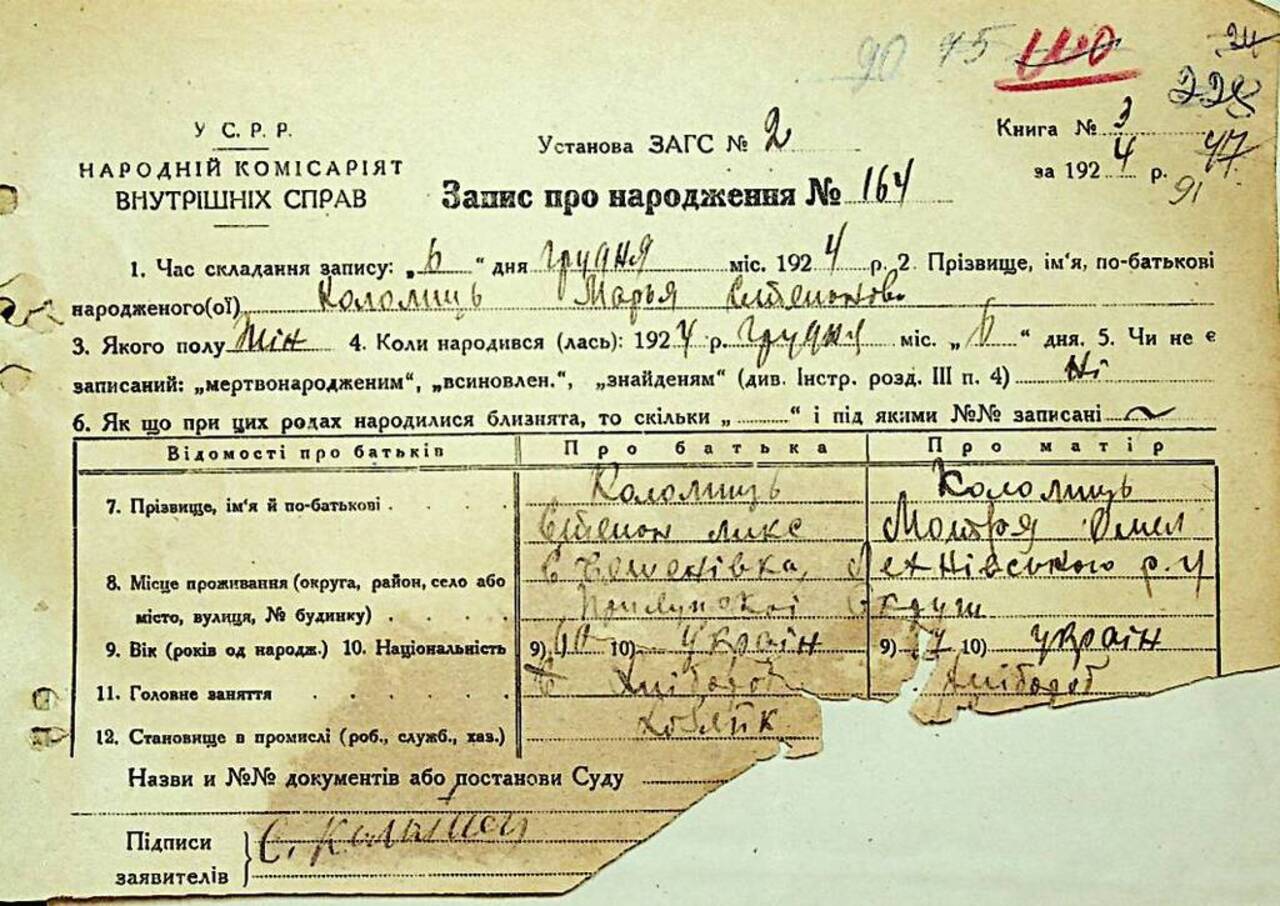 90 75 100 34
228
У С. Р. Р.
НАРОДНІЙ КОМІСАРІЯТ
ВНУТРІШНІХ СПРАВ
Установа ЗАГС № 2
Запис про народження № 164
Книга № 3
за 1924 р.
47
91
1. Час складання запису: „6“ дня грудня міс. 1924 р. 2. Прізвище, ім'я, по-батькові
народженого(ої) Коломиць Марья Степанов
3. Якого полу Жін 4. Коли народився (лась): 1924 р. грудня міс. „6“ дня. 5. Чи не є
записаний: „мертвонародженим“, „всиновлен.“, „знайденям“ (див. Інстр. розд. III п. 4) Ні
6. Як що при цих родах народилися близнята, то скільки „ “ і під якими №№ записані ~
Відомості про батьків Про батька Про матір
7. Прізвище, ім'я й по-батькові Коломиць Коломиць
Степон Мотря Омел
8. Місце проживання (округа, район, село або р.
місто, вулиця, № будинку) Прилуцкої Округи
9. Вік (років од народж.) 10. Національність 9) 40 10) Украін 9) 37 10) Украін
11. Головне заняття Хлібороб Хлібороб
12. Становище в промислі (роб., служб., хаз.)
Назви и №№ документів або постанови Суду
Підписи
заявителів } С.